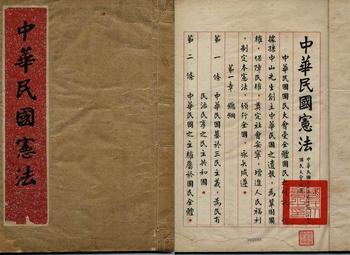 中華民國憲法
中華民國憲法
中華民國
國民大會
中華民國國民大會受全體國民
據孫中山先生創立中華民國之遺教，為鞏固國
權，保障民權，奠定社會安寧，增進人民福利
，制定本憲法，頒行全國，永矢咸遵。
第一章　總綱
第一條　中華民國基於三民主義，為民有
民治民享之民主共和國。
第二條　中華民國之主權屬於國民全體。